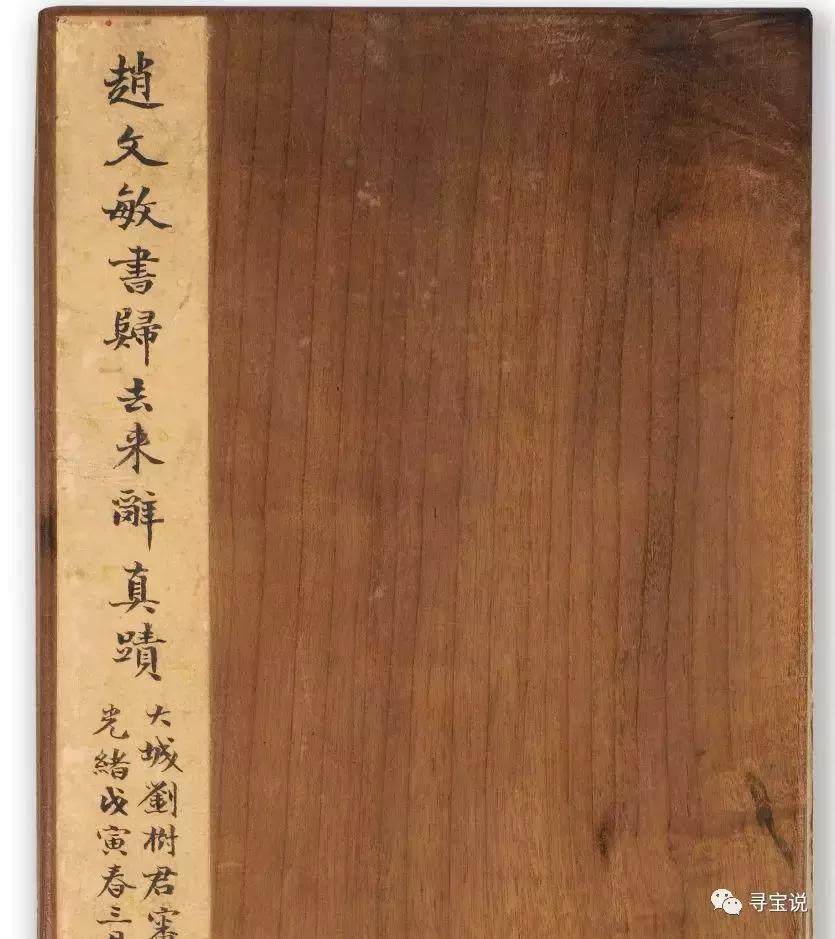 趙文敏書歸去来辭真蹟
大城劉樹君審
光緒戊寅春三月
寻宝说